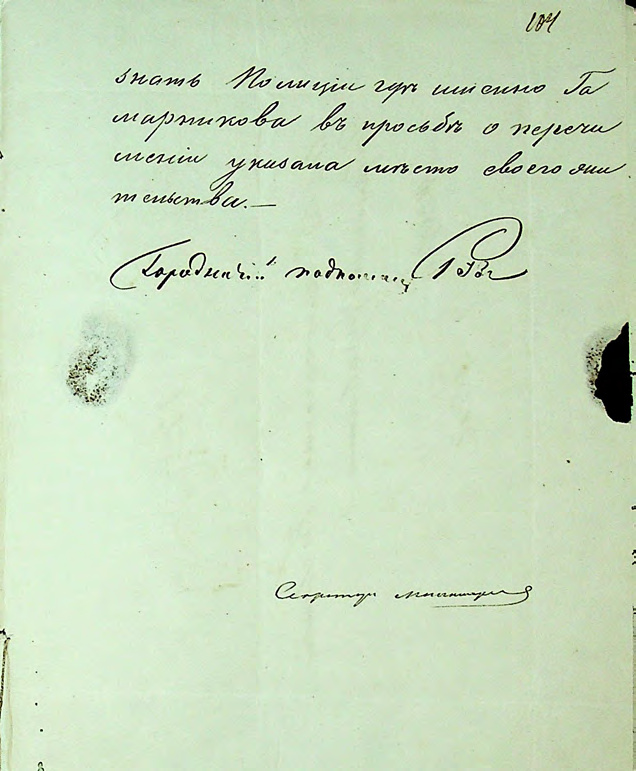 104
знать Полиціи гдѣ именно Га
марникова въ просьбѣ о перечи
сленіи указала мѣсто своего жи
тельства.—
Городничій подполков
Секретарь